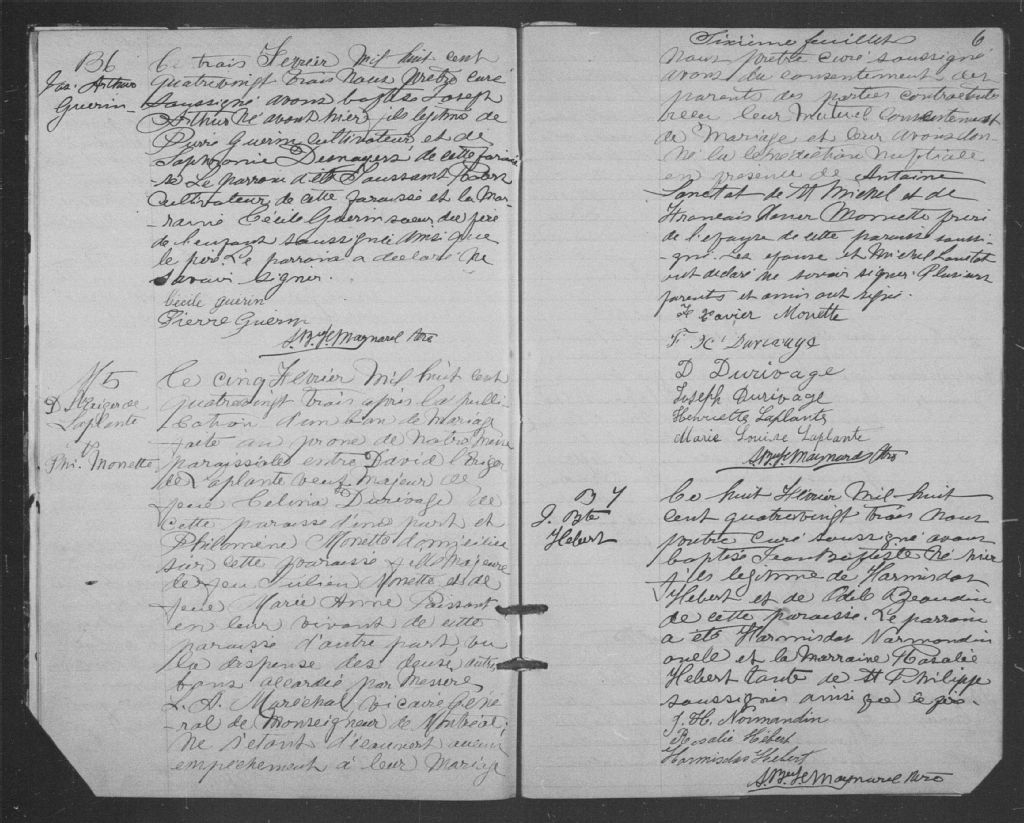 B6
Jos. Arthur
Guerin
Le trois Fevrier Mil huit cent
quatrevingt trois nous pretre curé
soussigné avons baptisé Joseph
Arthur né avant hier, fils legitime de
Pierre Guerin cultivateur et de
Sophronie Desnoyers de cette parois-
-se Le parrain a été Toussaint
cultivateur de cette paroisse et la Mar-
-raine Cécile Guerin soeur du père
de l'enfant soussignée ainsi que
le père Le parrain a déclaré ne
savoir signer.
Cécile Guerin
Pierre Guerin
J. Bte L. Maynard Ptre
M5
D. de
Laplante
&
Phi. Monette
Le cinq Fevrier Mil huit cent
quatrevingt trois après la publi-
-cation d'un ban de Mariage
faite au prone de notre Messe
paroissiale entre David
de Laplante veuf majeur de
feue Celina Durivage de
cette paroisse d'une part et
Philomène Monette domiciliée
sur cette paroisse fille Majeure
de feu Julien Monette et de
feue Marie Anne Poissant
en leur vivant de cette
paroisse d'autre part, vu
la dispense des deux autres
bans accordée par Messire
L. D. Maréchal, vicaire Géné-
-ral de Monseigneur de Montréal;
ne s'étant découvert aucun
empechement à leur Mariage
Sixième feuillet
6
Nous pretre curé soussigné
avons du consentement des
parents des parties contractantes
recu leur Mutuel Consentement
de Mariage et leur avons don-
né la bénédiction Nuptiale
en presence de Antoine
Lanctot de St Michel et de
Francois Xavier Monette frère
de l'epouse de cette paroisse soussi-
gné. Les epoux et Michel Lanctot
ont declaré ne savoir signer. Plusieurs
parents et amis ont signé.
F Xavier Monette
F X Durivage
D Durivage
Joseph Durivage
Henriette Laplante
Marie Louise Laplante
J. Bte L. Maynard Ptre
B7
J. Bte
Hebert
Le huit Fevrier Mil huit
cent quatrevingt trois Nous
pretre Curé soussigné avons
baptisé Jean Baptiste né hier
fils legitime de Harmisdas
Hebert et de Odile Beaudin
de cette paroisse. Le parrain
a été Harmisdas Normandin
oncle et la marraine Rosalie
Hebert tante de St Philippe
soussignés ainsi que le père.
J. H. Normandin
Rosalie Hébert
Harmisdas Hebert
J. Bte L. Maynard Ptre